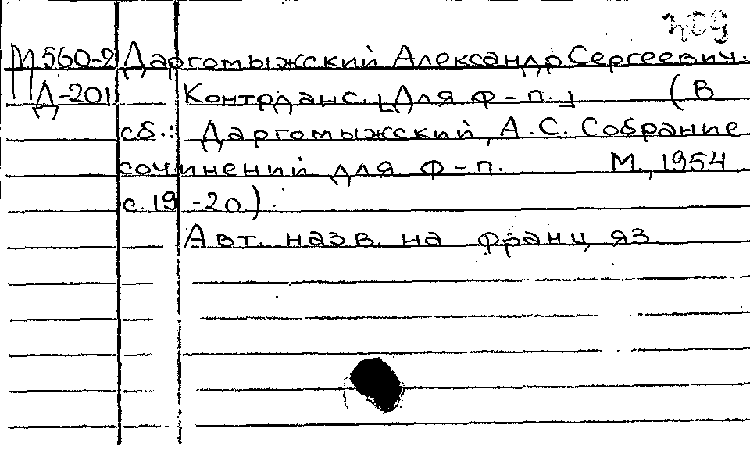 409
М 560-2 Даргомыжский Александр Сергеевич.
Д-201 Контрданс. [Для ф-п.] (В
сб.: Даргомыжский, А.С. Собрание
сочинений для ф-п. М., 1954
с. 19-20).
Авт. назв. на франц яз